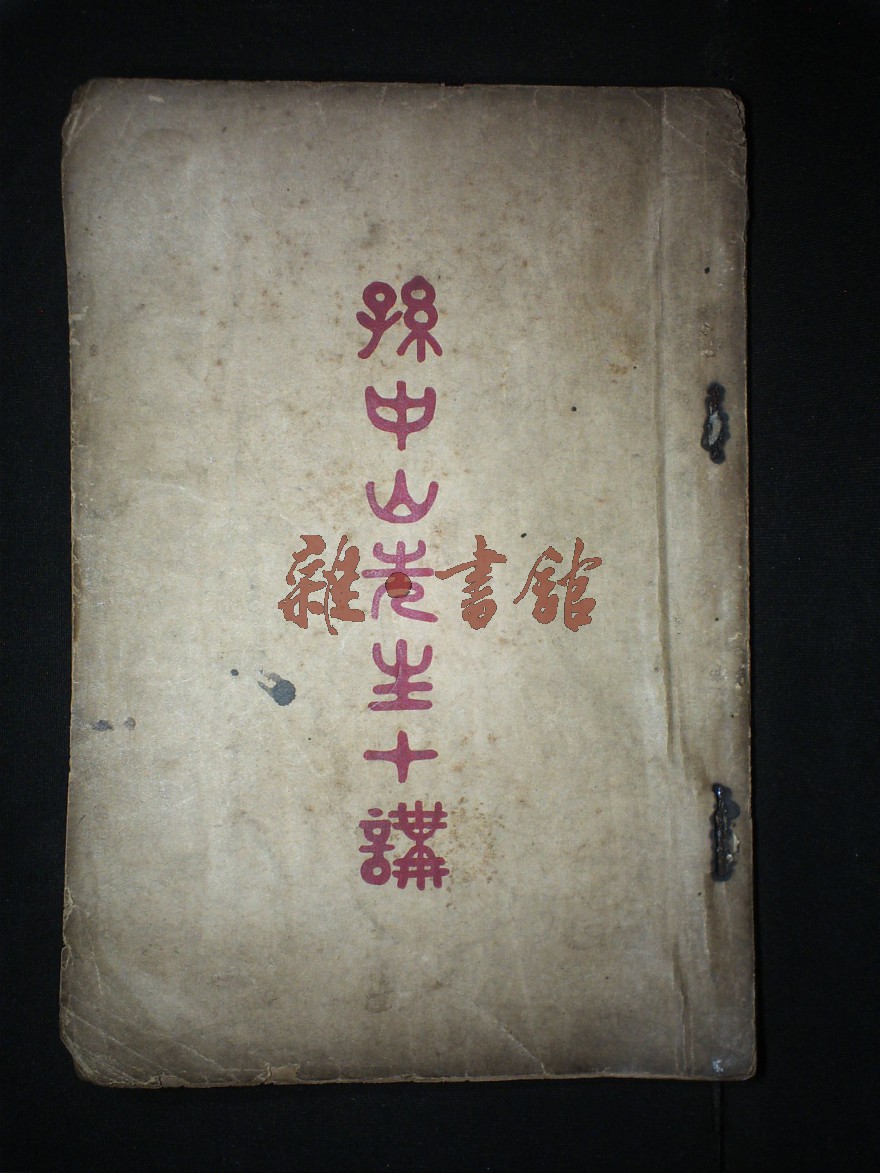 孫中山先生十講
雜·書館